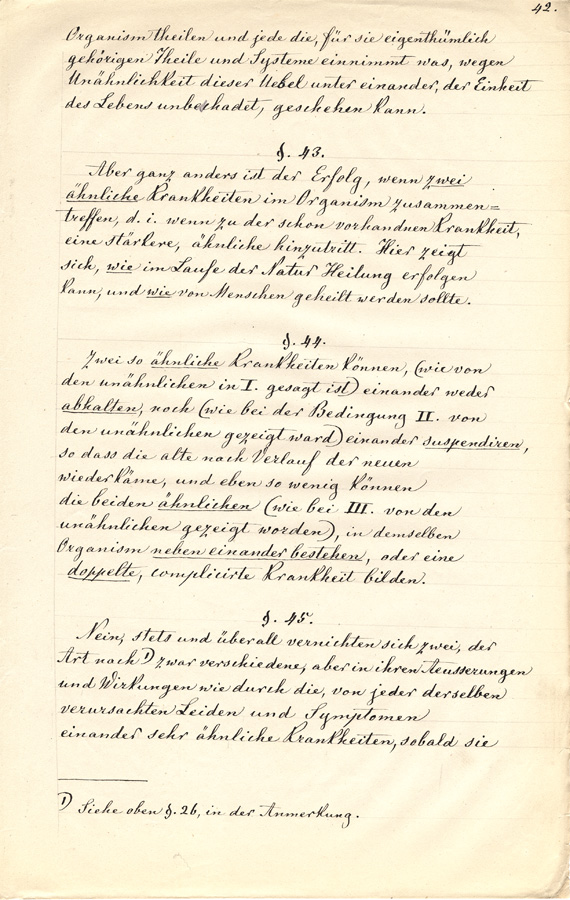 42.
Organism theilen und jede die, für sie eigenthümlich
gehörigen Theile und Systeme einnimmt was, wegen
Unähnlichkeit dieser Uebel unter einander, der Einheit
des Lebens unbeschadet, geschehen kann.
§. 43.
Aber ganz anders ist der Erfolg, wenn zwei
ähnliche Krankheiten im Organism zusammen=
treffen, d. i. wenn zu der schon vorhandnen Krankheit,
eine stärkere, ähnliche hinzutritt. Hier zeigt
sich, wie im Laufe der Natur Heilung erfolgen
kann, und wie von Menschen geheilt werden sollte.
§. 44.
Zwei so ähnliche Krankheiten können, (wie von
den unähnlichen in I. gesagt ist) einander weder
abhalten, noch (wie bei der Bedingung II. von
den unähnlichen gezeigt ward) einander suspendiren,
so dass die alte nach Verlauf der neuen
wiederkäme, und eben so wenig können
die beiden ähnlichen (wie bei III. von den
unähnlichen gezeigt worden), in demselben
Organism neben einander bestehen, oder eine
doppelte, complicirte Krankheit bilden.
§. 45.
Nein, stets und überall vernichten sich zwei, der
Art nach 1) zwar verschiedene, aber in ihren Aeusserungen
und Wirkungen wie durch die, von jeder derselben
verursachten Leiden und Symptomen
einander sehr ähnliche Krankheiten, sobald sie
1) Siehe oben §. 26, in der Anmerkung.